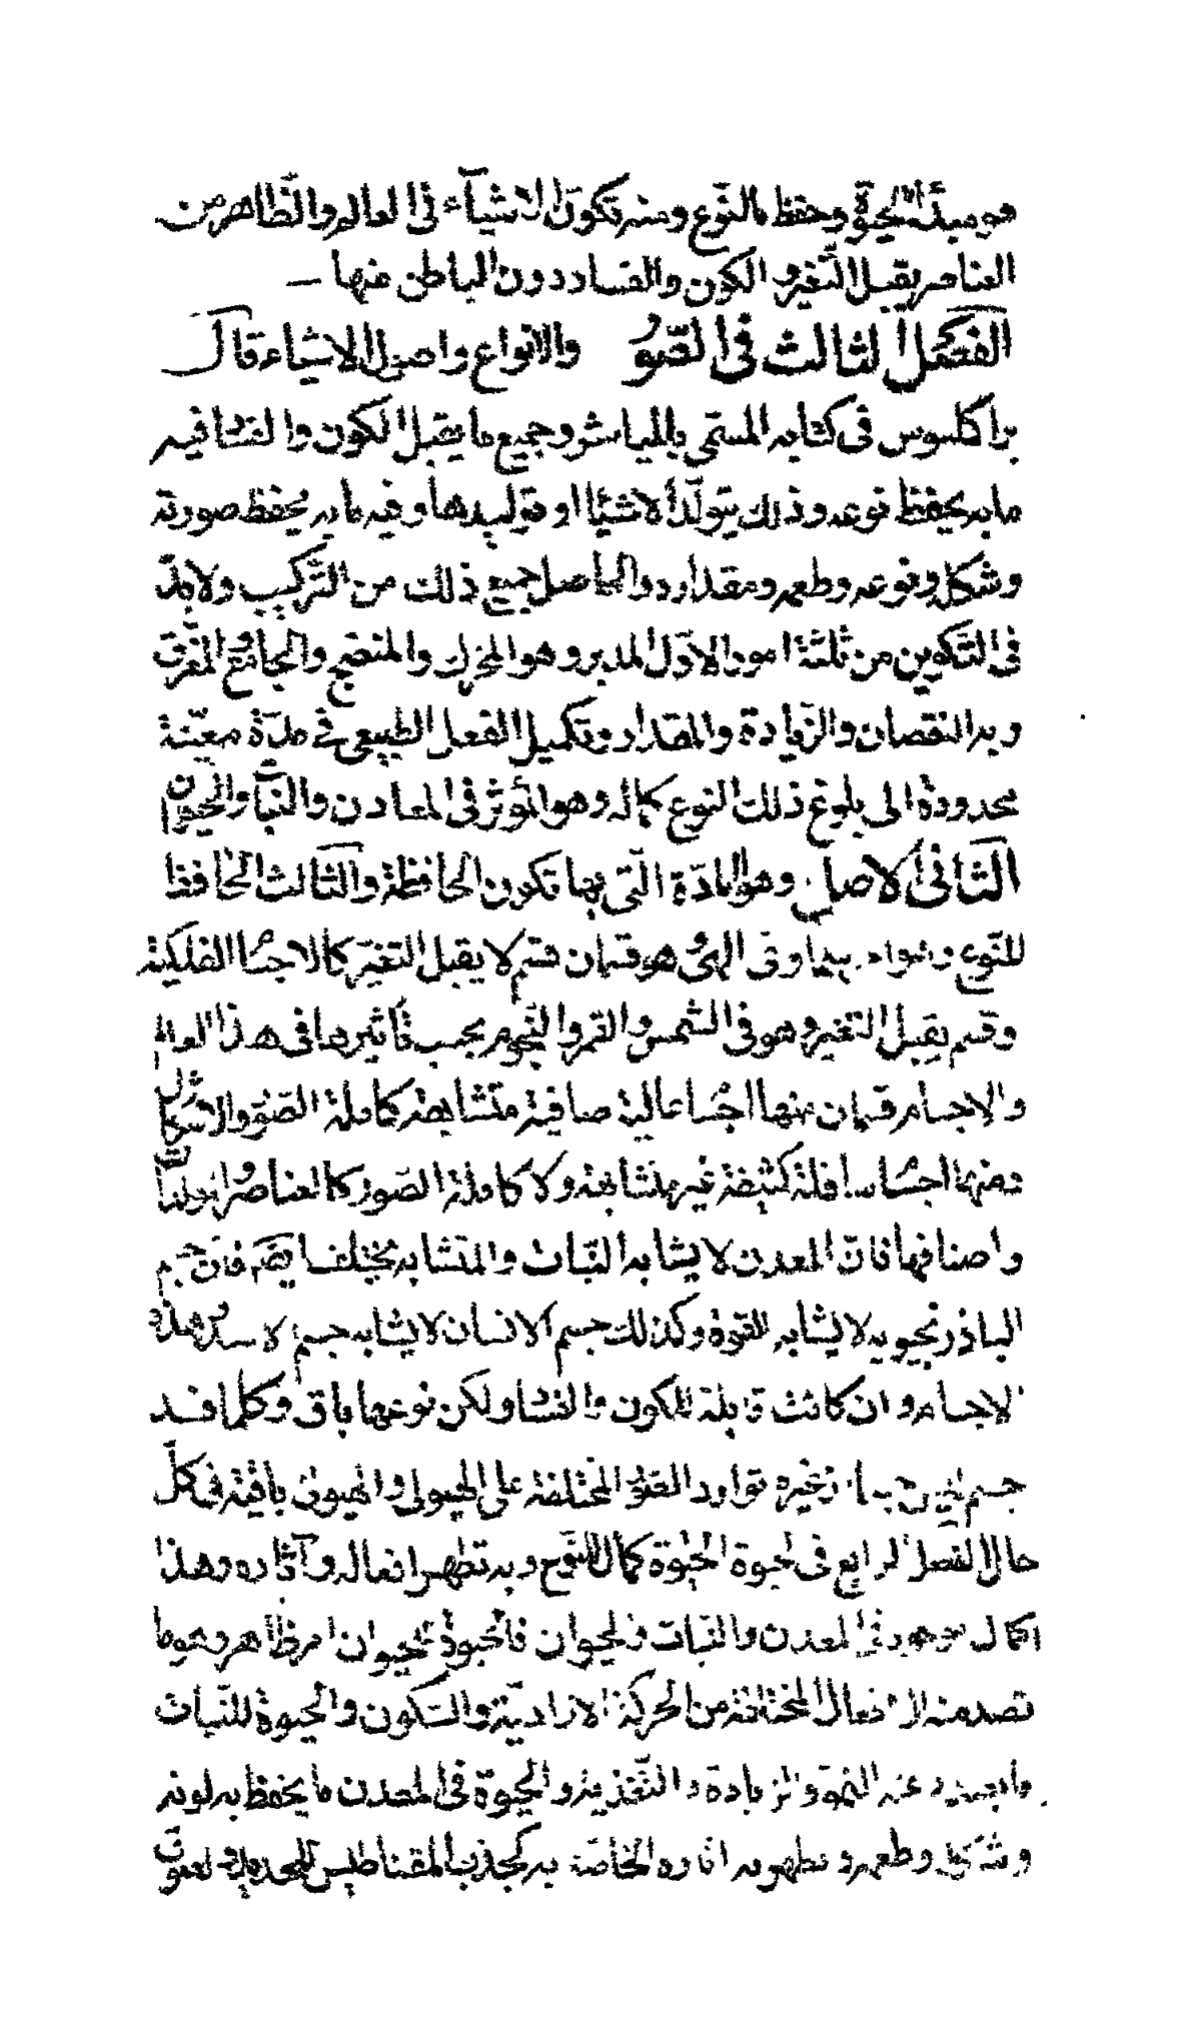 هو مبدأ الحيوة وحفظ بالنّوع ومنه تكوّن الاشيآء فى العالم والظّاهر من
العناصر يقبل التّغير والكون والفساد دون الباطن عنها ــ
الفصل الثالث فى الصّور والانواع واصول الاشياء قال
براكلسوس فى كتابه المسمّى بالمياسرو جميع ما يقبل الكون والفسا فيه
ما به يحفظ نوعه وذلك بتولّد الاشيا او توليدها وفيه ما به يحفظ صورته
وشكله ونوعه وطعمه ومقداره والحاصل جميع ذلك من التّركيب ولا بدّ
فى التّكوين من ثلثة امور الاوّل المدبر وهو المحرك والمنضج والجامع المفّرق
وبه النقصان والزّيادة والمقدار وتكميل الفعل الطبيعى فى مدّة معيّنة
محدودة الى بلوغ ذلك النوع كماله وهو المؤثر فى المعادن والنبّا والحيوان
الثّانى الاصل وهو المادّة الّتى بها تكون الحافظة والثالث الحافظ
للنّوع وقسم لا يقبل التغيّر كالاجسا الفلكية
وقسم يقبل التغير وهو فى الشمس والقمر والنّجوم بحسب تأثيرها فى هذا العالم
والاجسام قسمان منها اجسا عالية صافية متشابهة كاملة الصّور والاشكال
ومنها اجسا سافلة كثيفة غير متشابهة ولا كاملة الصّور كالعناصر
واصنافها فانّ المعدن لا يشابه النّبات والمتشابه يختلف ايضا فانّ جسم
الباذرنجبويه لا يشابه للقوة وكذلك جسم الانسان لا يشابه جسم الاسد وهذه
الاجسام وان كانت قابلة للكون والفسا ولكن نوعها باق وكلما فسد
جسم غيره توارد الصّور المختلفة على الهيولى والهيولى باقية فى كلّ
حال الفصل الرابع فى الحيوة الحيوة كمال النّوع وبه تظهر افعاله وآثاره وهذا
الكمال موجود فى المعدن والنّبات والحيوان فالحيوة للحيوان امر ظاهر وهو ما
تصدر منه الافعال المختلفة من الحركة الاراديّة والسّكون والحيوة للنّبات
ما يصدر عنه النموّ والزيادة والتّغذية والحيوة فى المعدن ما يحفظ به لونه
وشكله وطعمه وتظهر به اثاره الخاصّة به كجذب المقناطيس للحديد